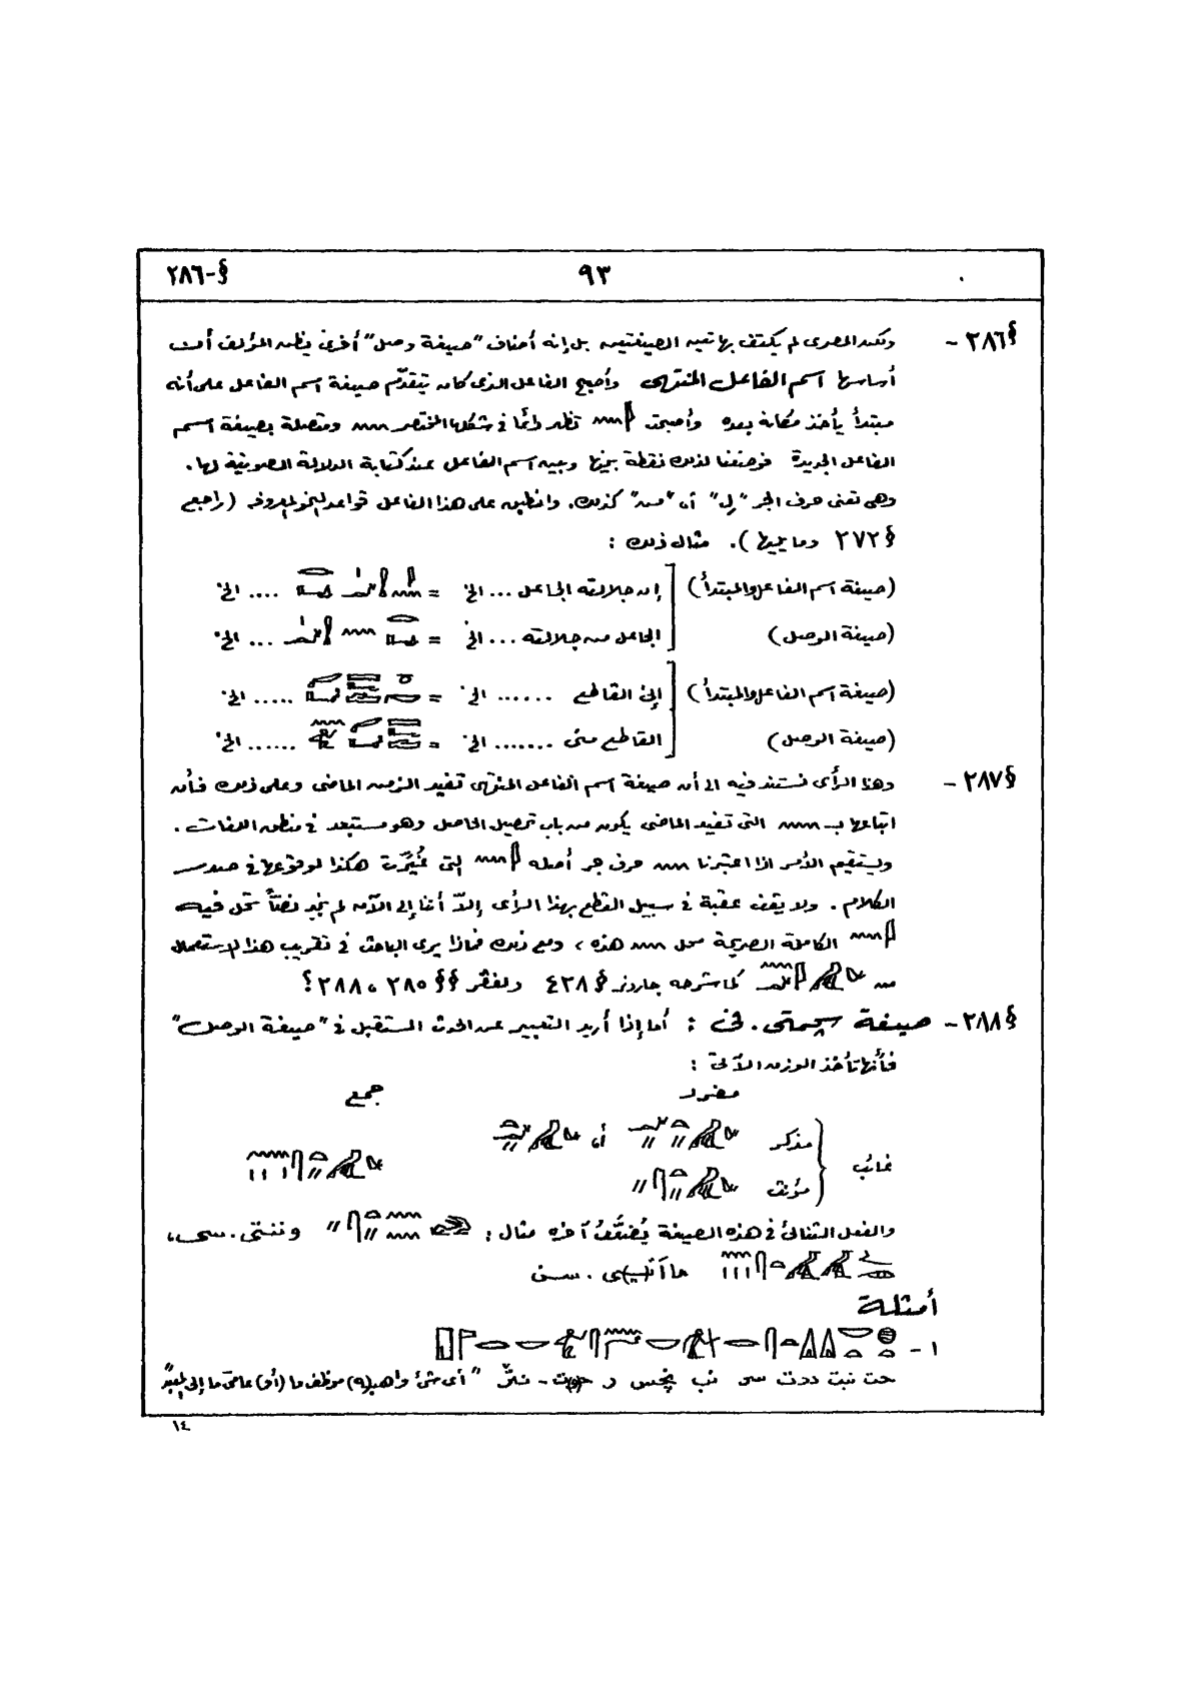 §-٢٨٦ ٩٣
§٢٨٦- ولكن المصرى لم يكتف بهاتين الصيغتين بل إنه أضاف "صيغة وصل" أخرى يظن المؤلف أن
أساسها اسم الفاعل المنتهى وأصبح الفاعل الذى كان يتقدّم صيغة اسم الفاعل على أنه
مبتدأ يأخذ مكانه بعده وأصبحت تظهر دائمًا فى شكلها المختصر ومتصلة بصيغة اسم
الفاعل الجديدة فوضعنا لذلك نقطة بينها وبين اسم الفاعل عند كتابة الدلالة الصوتية لها.
وهى تعنى حرف الجر "لِ" أى "من" كذلك. وانطبق على هذا الفاعل قواعد النحو المعروفه (راجع
§٢٧٢ وما يليها). مثال ذلك :
(صيغة اسم الفاعل والمبتدأ) إن جلالته الجاعل ... الخ = .... الخ.
(صيغة الوصل) الجاعل من جلالته ... الخ = ... الخ.
(صيغة اسم الفاعل والمبتدأ) إنى القاطع ...... الخ. = ..... الخ.
(صيغة الوصل) القاطع منى ....... الخ. = ...... الخ.
§٢٨٧- وهذا الرأى نستند فيه الى أن صيغة اسم الفاعل المنتهى تفيد الزمن الماضى وعلى ذلك فأن
اتباعها بـ التى تفيد الماضى يكون من باب تحصيل الحاصل وهو مستبعد فى منطق اللغات.
ويستقيم الأمر اذا اعتبرنا حرف جر أصله التى غُيّرت هكذا لوقوعها فى صدر
الكلام. ولا يقف عقبة فى سبيل القطع بهذا الرأى إلاّ أننا إلى الآن لم نجد نصّاً تحل فيه
الكاملة الصريحة محل هذه ، ومع ذلك فماذا يرى الباحث فى تقريب هذا الاستعمال
من كما شرحه جاردنر §٤٣٨ ولفقر §§٢٨٥ ، ٢٨٨؟
§٢٨٨- صيغة سچمتى.فى : أما إذا أريد التعبير عن الحدث المستقبل فى "صيغة الوصل"
فأنها تأخذ الوزن الآتى :
مفرد جمع
غائب مذكر أى
مؤنث
والفعل الثنائى فى هذه الصيغة يُضَعَّفُ آخره مثال : وننتى.سى،
سن
أمثلة
١-
خت نبت ددت سى نب "أى شئ واهبه(؟) موظف ما (أو) عامى ما إلى المعبد"
١٤